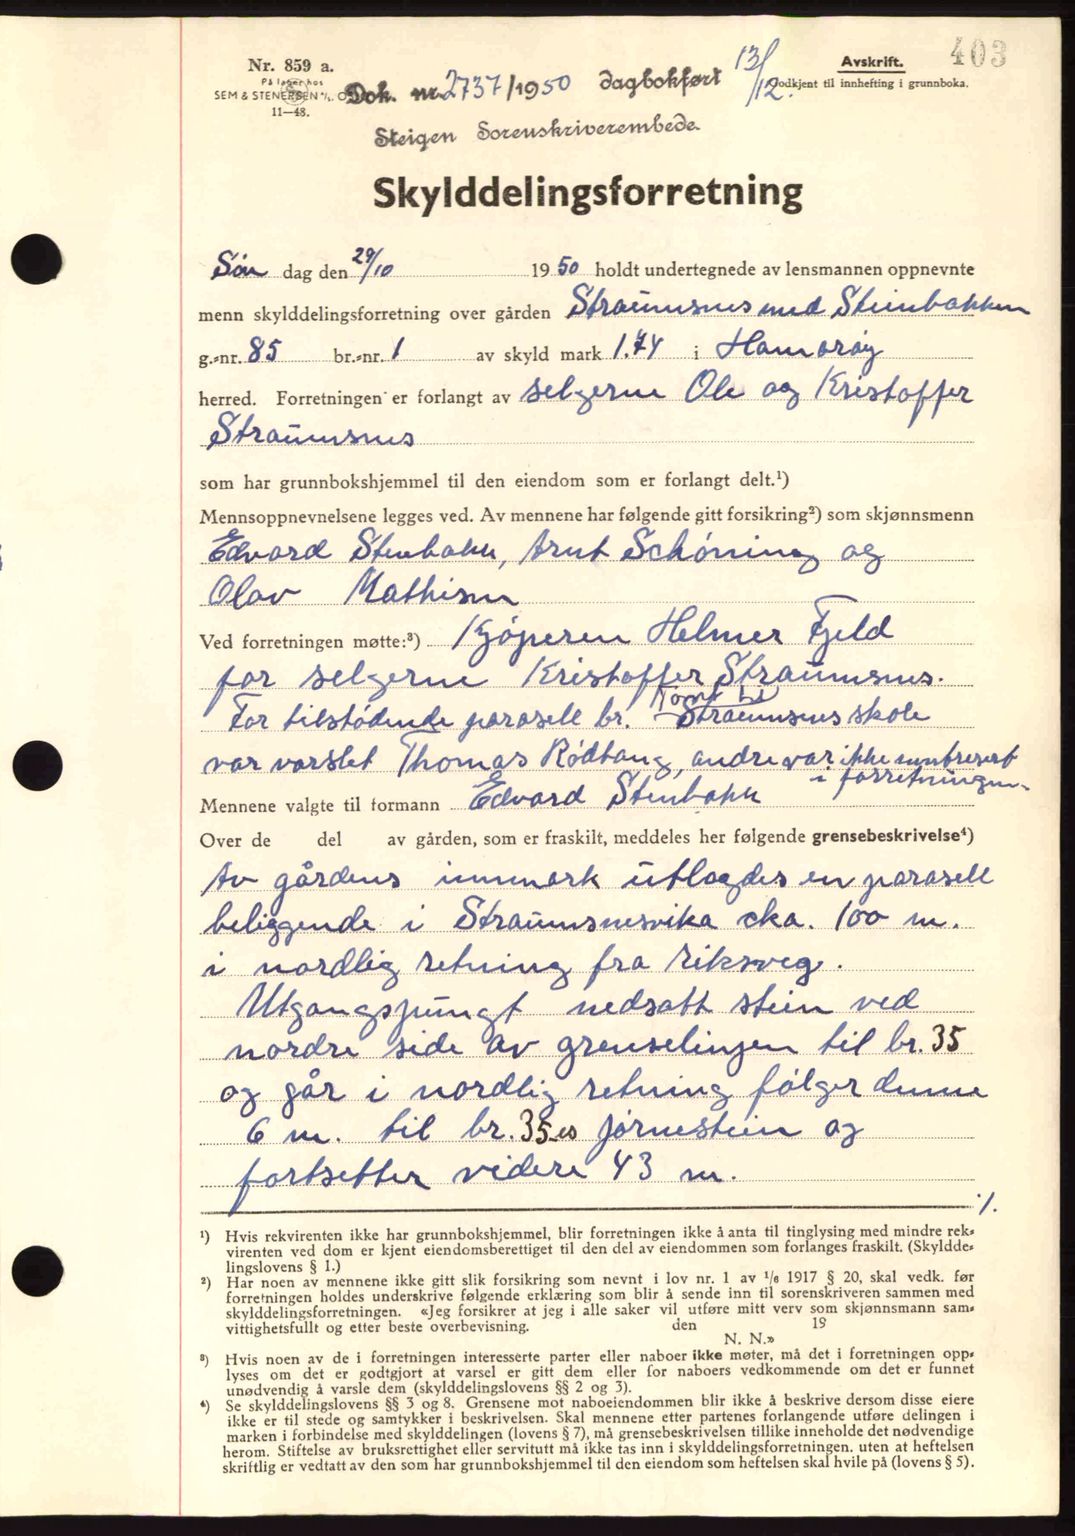 403
Nr. 859 a.
På lager hos
SEM & STENERSEN A/S, OSLO
11—48.
Dok. nr. 2737/1950 dagbokført 13/12.
Steigen Sorenskriverembede.
Avskrift.
Godkjent til innhefting i grunnboka.
Skylddelingsforretning
Søn dag den 29/10 1950 holdt undertegnede av lensmannen oppnevnte
menn skylddelingsforretning over gården Straumsnes med Steinbakken
g.-nr. 85 br.-nr. 1 av skyld mark 1.74 i Hamarøy
herred. Forretningen er forlangt av selgerne Ole og Kristoffer
Straumsnes
som har grunnbokshjemmel til den eiendom som er forlangt delt.¹)
Mennsoppnevnelsene legges ved. Av mennene har følgende gitt forsikring²) som skjønnsmenn
Edvard Stenbakk, Arnt Schøning og
Olav Mathisen
Ved forretningen møtte:³) Kjøperen Helmer Fjeld
for selgerne Kristoffer Straumsnes.
For tilstødende parasell br. Straumsnes skole
var varslet Thomas Rødtang, andre var ikke
i forretningen.
Mennene valgte til formann Edvard Stenbakk
Over de del av gården, som er fraskilt, meddeles her følgende grensebeskrivelse⁴)
Av gårdens innmark utlagdes en parasell
beliggende i Straumsnesvika cka. 100 m.
i nordlig retning fra riksveg.
Utgangspungt nedsatt stein ved
nordre side av grenselinjen til br. 35
og går i nordlig retning følger denne
6 m. til br. 35-es jørnestein og
fortsetter videre 43 m.
./.
¹) Hvis rekvirenten ikke har grunnbokshjemmel, blir forretningen ikke å anta til tinglysing med mindre rek-
virenten ved dom er kjent eiendomsberettiget til den del av eiendommen som forlanges fraskilt. (Skyldde-
lingslovens § 1.)
²) Har noen av mennene ikke gitt slik forsikring som nevnt i lov nr. 1 av 1/6 1917 § 20, skal vedk. før
forretningen holdes underskrive følgende erklæring som blir å sende inn til sorenskriveren sammen med
skylddelingsforretningen. «Jeg forsikrer at jeg i alle saker vil utføre mitt verv som skjønnsmann sam-
vittighetsfullt og etter beste overbevisning. den 19
N. N.»
³) Hvis noen av de i forretningen interesserte parter eller naboer ikke møter, må det i forretningen opp-
lyses om det er godtgjort at varsel er gitt dem eller for naboers vedkommende om det er funnet
unødvendig å varsle dem (skylddelingslovens §§ 2 og 3).
⁴) Se skylddelingslovens §§ 3 og 8. Grensene mot naboeiendommen blir ikke å beskrive dersom disse eiere
ikke er til stede og samtykker i beskrivelsen. Skal mennene etter partenes forlangende utføre delingen i
marken i forbindelse med skylddelingen (lovens § 7), må grensebeskrivelsen tillike inneholde det nødvendige
herom. Stiftelse av bruksrettighet eller servitutt må ikke tas inn i skylddelingsforretningen, uten at heftelsen
skriftlig er vedtatt av den som har grunnbokshjemmel til den eiendom som heftelsen skal hvile på (lovens § 5).